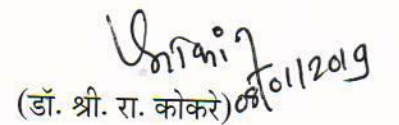 08/01/2019
(डॉ. श्री. रा. कोकरे)